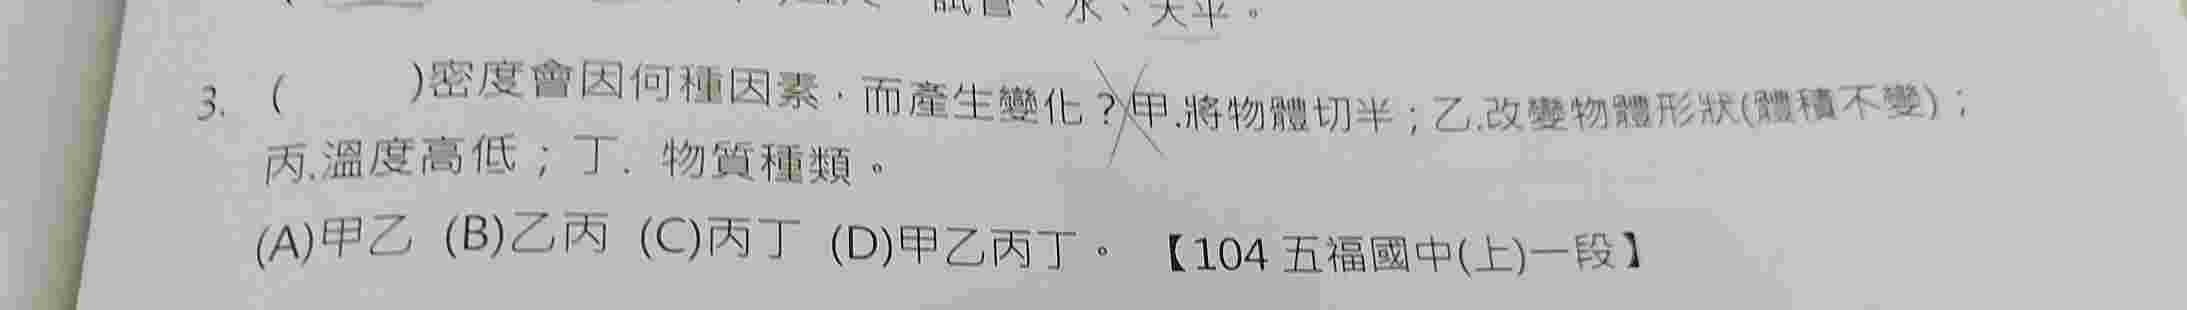 試管、水、天平。
3. ( )密度會因何種因素，而產生變化？甲.將物體切半；乙.改變物體形狀(體積不變)；
丙.溫度高低；丁. 物質種類。
(A)甲乙 (B)乙丙 (C)丙丁 (D)甲乙丙丁。【104 五福國中(上)一段】